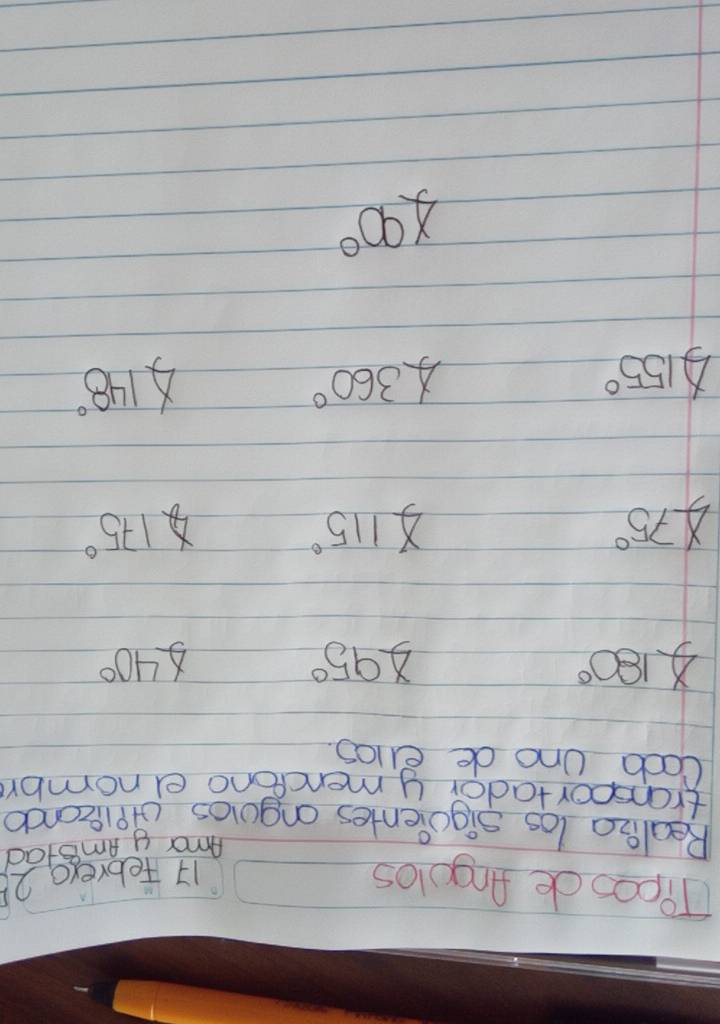 Tipos de Angulos
17 Febrero 2
Amor y Amistad
Realiza los siguientes angulos utilizando
transportador y menciona el nombre
cada uno de ellos.
∡180° ∡95° ∡40°
∡75° ∡115° ∡175°
∡155° ∡360° ∡148°
∡90°